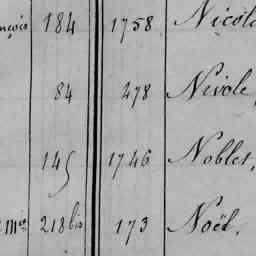 nçois 184 1758 Nicol
84 278 Nivole
145 1746 Noblet,
Mie 218 bis 173 Noël.